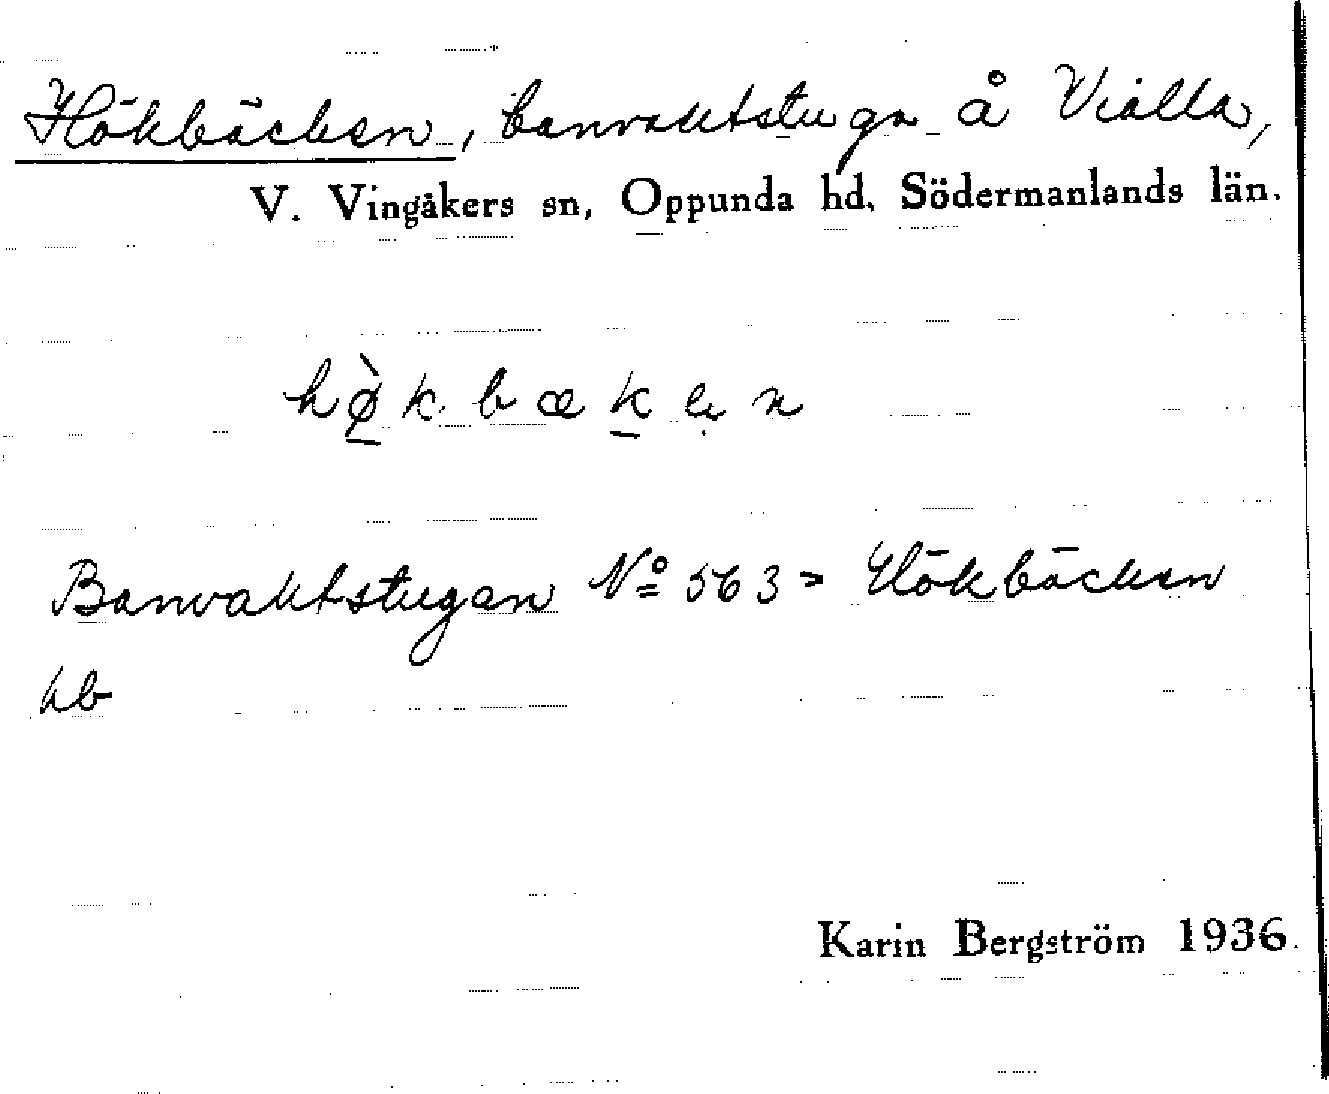 Hökbäcken, banvaktstuga å Viålla,
V. Vingåkers sn, Oppunda hd, Södermanlands län.
hø̠̀kbæk̠en
Banvaktstugan Nº 563 = Hökbäcken
hb
Karin Bergström 1936.